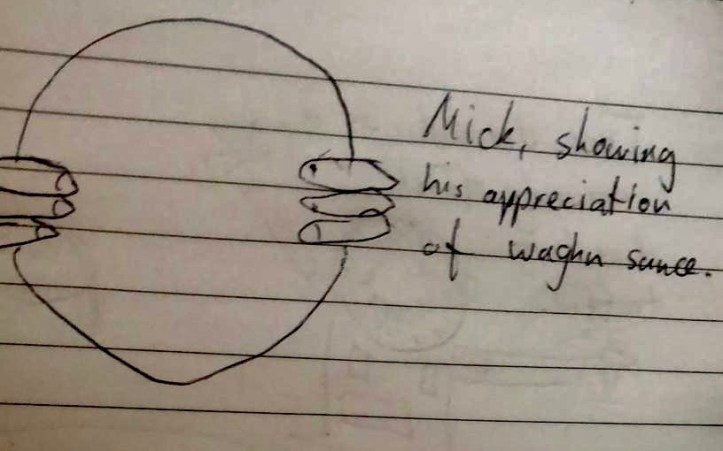 Mick, showing
his appreciation
of waghn sauce.